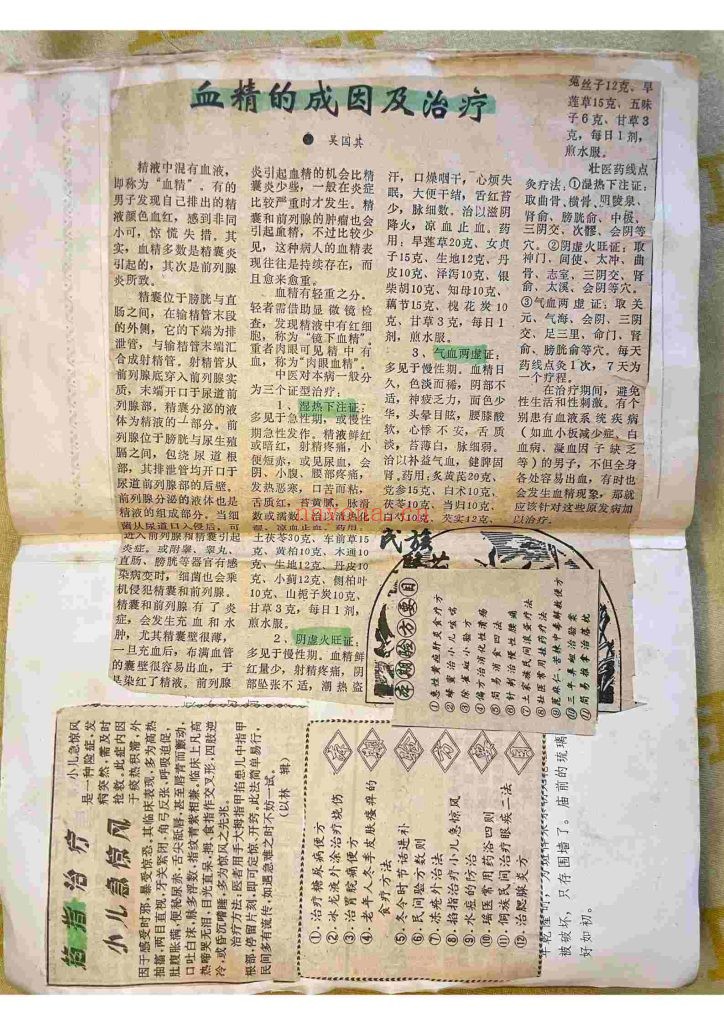 血精的成因及治疗
● 吴国其
精液中混有血液，
即称为“血精”。有的
男子发现自己排出的精
液颜色血红，感到非同
小可，惊慌失措。其
实，血精多数是精囊炎
引起的，其次是前列腺
炎所致。
精囊位于膀胱与直
肠之间，在输精管末段
的外侧，它的下端为排
泄管，与输精管末端汇
合成射精管。射精管从
前列腺底穿入前列腺实
质，末端开口于尿道前
列腺部。精囊分泌的液
体为精液的一部分。前
列腺位于膀胱与尿生殖
膈之间，包绕尿道根
部，其排泄管均开口于
尿道前列腺部的后壁。
前列腺分泌的液体也是
精液的组成部分。当细
菌从尿道口入侵后，可
进入前列腺和精囊引起
炎症。或附睾、睾丸、
直肠、膀胱等器官有感
染病变时，细菌也会乘
机侵犯精囊和前列腺。
精囊和前列腺有了炎
症，会发生充血和水
肿，尤其精囊壁很薄，
一旦充血后，布满血管
的囊壁很容易出血，于
是染红了精液。前列腺
炎引起血精的机会比精
囊炎少些，一般在炎症
比较严重时才发生。精
囊和前列腺的肿瘤也会
引起血精，不过比较少
见，这种病人的血精表
现往往是持续存在，而
且愈来愈重。
血精有轻重之分。
轻者需借助显微镜检
查，发现精液中有红细
胞，称为“镜下血精”。
重者肉眼可见精中有
血，称为“肉眼血精”。
中医对本病一般分
为三个证型治疗：
1、湿热下注证：
多见于急性期，或慢性
期急性发作。精液鲜红
或暗红，射精疼痛，小
便短赤，或见尿血，会
阴、小腹、腰部疼痛，
发热恶寒，口苦而粘，
舌质红，苔黄腻，脉滑
数或濡数。治以清热化
土茯苓30克、车前草15
克、黄柏10克、木通10
克、生地12克、丹皮10
克、小蓟12克、侧柏叶
10克、山栀子炭10克、
甘草3克，每日1剂，
煎水服。
2、阴虚火旺证：
多见于慢性期。血精鲜
红量少，射精疼痛，阴
部坠胀不适，潮热盗
汗，口燥咽干，心烦失
眠，大便干结，舌红苔
少，脉细数。治以滋阴
降火，凉血止血。药
用：旱莲草20克、女贞
子15克、生地12克、丹
皮10克、泽泻10克、银
柴胡10克、知母10克、
藕节15克、槐花炭10
克、甘草3克，每日1
剂，煎水服。
3、气血两虚证：
多见于慢性期。血精日
久，色淡而稀，阴部不
适，神疲乏力，面色少
华，头晕目眩，腰膝酸
软，心悸不安，舌质
淡，苔薄白，脉细弱。
治以补益气血，健脾固
肾。药用：炙黄芪20克、
党参15克、白术10克、
茯苓10克、当归10克、
白芍10克、芡实12克、
菟丝子12克、旱
莲草15克、五味
子6克、甘草3
克，每日1剂，
煎水服。
壮医药线点
灸疗法：①湿热下注证：
取曲骨、横骨、阴陵泉、
肾俞、膀胱俞、中极、
三阴交、次髎、会阴等
穴。②阴虚火旺证：取
神门、间使、太冲、曲
骨、志室、三阴交、肾
俞、太溪、会阴等穴。
③气血两虚证：取关
元、气海、会阴、三阴
交、足三里、命门、肾
俞、膀胱俞等穴。每天
药线点灸1次，7天为
一个疗程。
在治疗期间，避免
性生活和性刺激。有个
别患有血液系统疾病
（如血小板减少症、白
血病、凝血因子缺乏
等）的男子，不但全身
各处容易出血，有时也
会发生血精现象，那就
应该针对这些原发病加
以治疗。
民族
本期验方要目
①急性黄疸肝炎食疗方
②蜂蜜治小儿咳嗽
③除雀斑小验方
④偏方治消化性溃疡
⑤简易消食四法
⑥针刺治慢性腰痛
⑦土家族民间滚蛋疗法
⑧壮医常用挂药疗法
⑩三年鼻衄治验案
⑪简易推拿治落枕
掐指治疗
小儿急惊风
小儿急惊风
是一种险症，发
病突然，需及时
抢救。此症内因
于痰热积滞，外
因于感受时邪，暴受惊恐，其临床表现，多为高热
抽搐，两目直视，牙关紧闭，角弓反张，呼吸迫促，
肚腹胀满，便秘尿赤，舌尖舐唇，甚至唇青而颤动，
口吐白沫，脉多浮数，指纹青紫相兼。临床上凡高
热啼哭无泪，目光直呆，拇、食指作交叉形，四肢逆
冷，或昏沉嗜睡，多为惊风之先兆。
治疗方法：医者用手大拇指甲掐患儿中指甲
根部，停留片刻，即可定惊、开窍。此法简单易行，
民间多有流传，如遇急难之时不妨一试。
（以林 辑）
本期验方要目
①．治疗糖尿病便方
②．冰龙液外涂治疗烧伤
③．治胃脘痛便方
④．老年人冬季皮肤瘙痒的
食疗方法
⑤．冬令时节话进补
⑥．民间验方数则
⑦．冻疮外治法
⑧．掐指治疗小儿急惊风
⑨．水痘的防治
⑩．瑶医常用药浴四则
⑪．侗族民间治疗眼疾二法
⑫．治腮腺炎方
庙前的琉璃
被破坏，只存围墙了。
好如初。